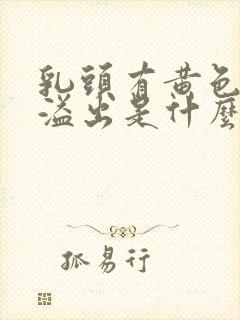 乳頭有黃色
溢出是什麼
孤易行